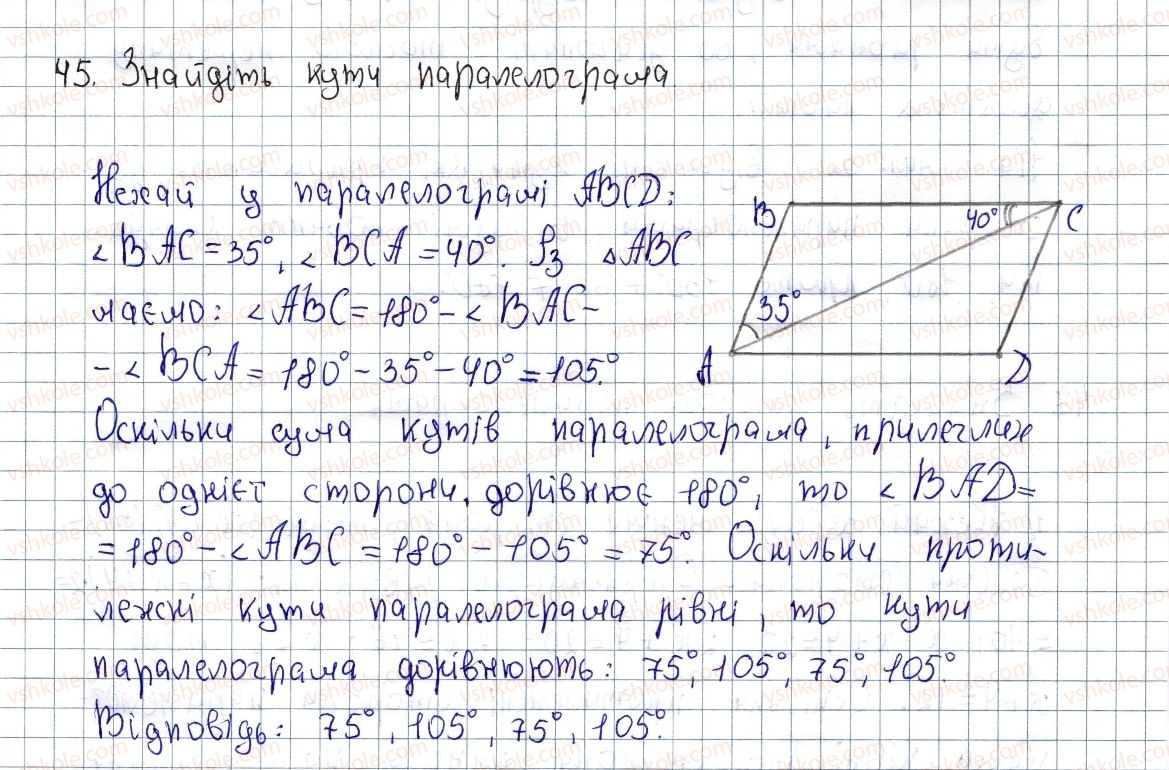 45. Знайдіть кути паралелограма
Нехай у паралелограмі ABCD:
∠BAC = 35°, ∠BCA = 40°. Із △ABC
маємо: ∠ABC = 180° - ∠BAC -
- ∠BCA = 180° - 35° - 40° = 105°.
B
40°
C
35°
A
D
Оскільки сума кутів паралелограма, прилеглих
до однієї сторони, дорівнює 180°, то ∠BAD =
= 180° - ∠ABC = 180° - 105° = 75°. Оскільки проти-
лежні кути паралелограма рівні, то кути
паралелограма дорівнюють: 75°, 105°, 75°, 105°.
Відповідь: 75°, 105°, 75°, 105°.
vshkole.com